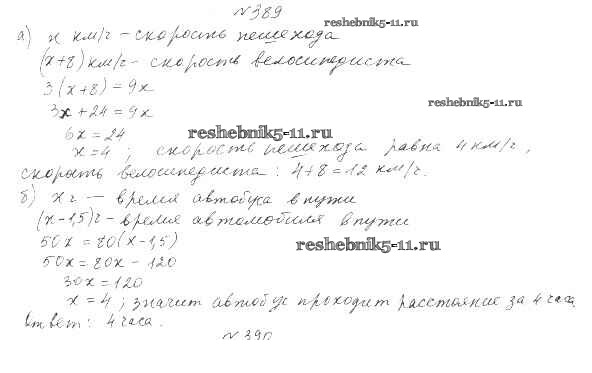 №389
reshebnik5-11.ru
а) x км/ч – скорость пешехода
(x+8) км/ч – скорость велосипедиста
3(x+8) = 9x
reshebnik5-11.ru
3x + 24 = 9x
6x = 24
reshebnik5-11.ru
x = 4 ; скорость пешехода равна 4 км/ч,
скорость велосипедиста: 4+8=12 км/ч.
б) x ч — время автобуса в пути
(x-1,5)ч – время автомобиля в пути
50x = 80(x-1,5)
reshebnik5-11.ru
50x = 80x - 120
30x = 120
x = 4 ; значит автобус проходит расстояние за 4 часа
Ответ: 4 часа.
№390